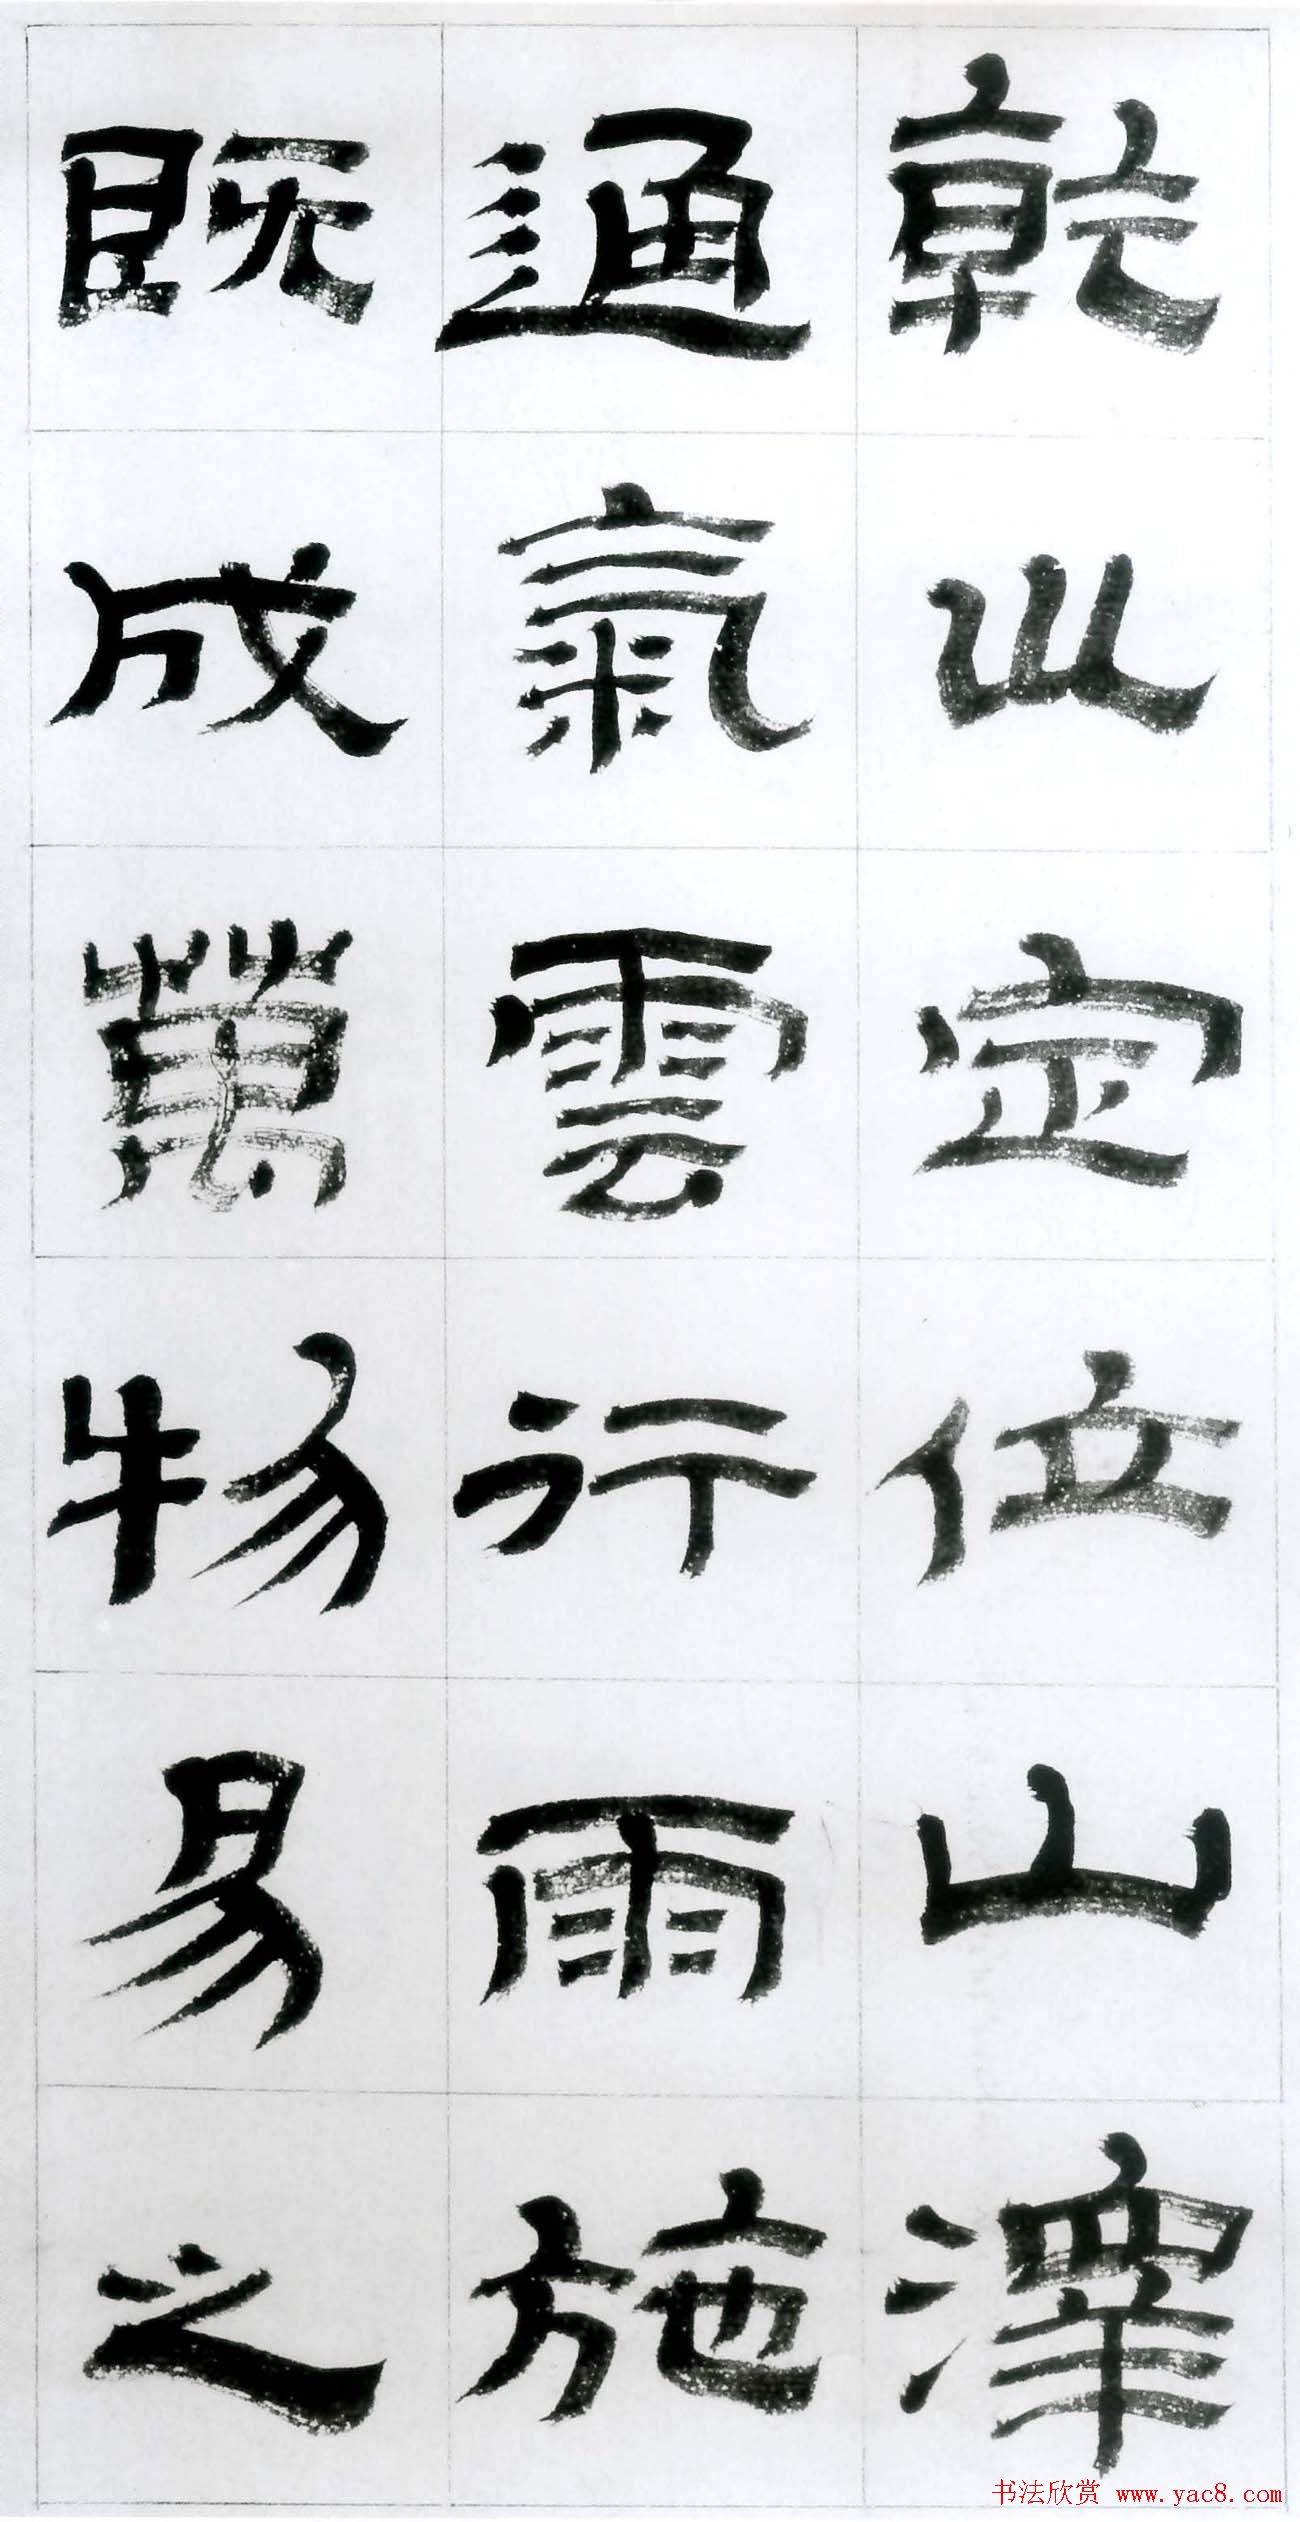 乾坤定位山澤
通氣雲行雨施
既成萬物易之
书法欣赏 www.yac8.com